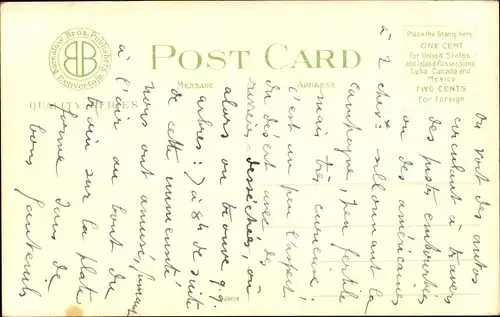 Barkalow Bros. Publishers
Denver, Colo.
POST CARD
MESSAGE
ADDRESS
QUALITY SERIES
Place the Stamp here
ONE CENT
For United States
and Island Possessions
Cuba, Canada and
Mexico
TWO CENTS
For foreign
On voit des autos
circulant à travers
des pistes embourbées
ou des américaines
à 2 chx sillonnant la
campagne, peu fertile
mais très curieuse :
c'est un peu l'aspect
du désert avec des
rivières desséchées, où
alors on trouve q.q.
arbres : 7 à 8h de suite
de cette immensité
nous ont amusés, fumant
à l'air au bout du
train sur la plate
forme dans de
bons fauteuils